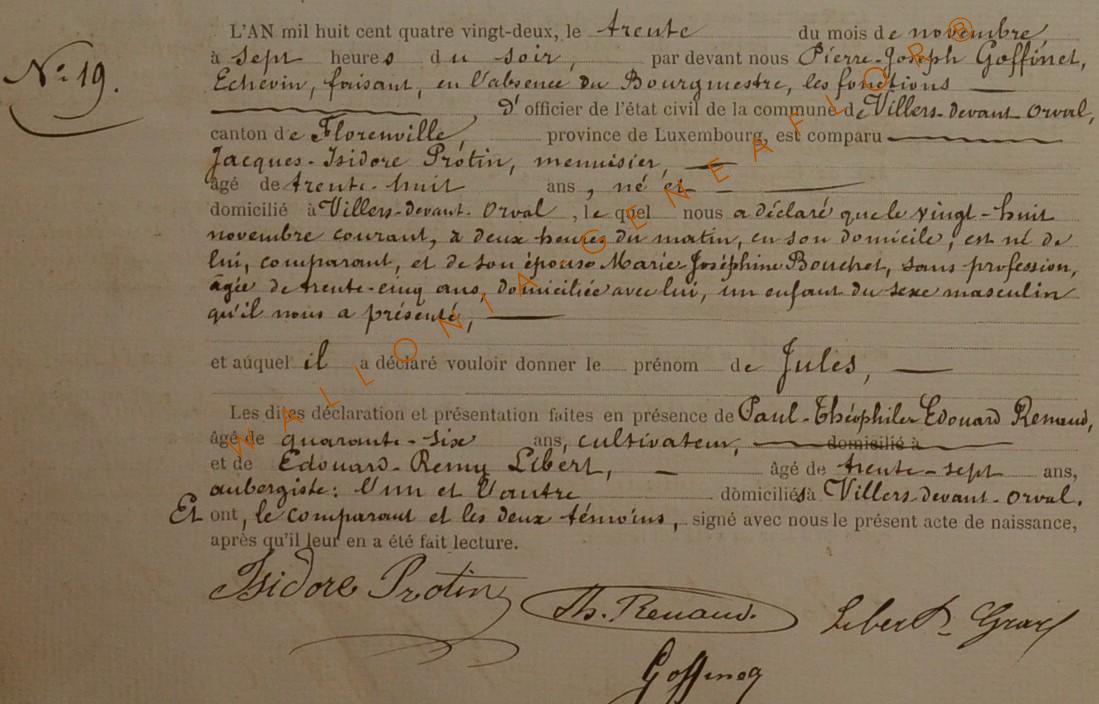 L'AN mil huit cent quatre vingt-deux, le trente du mois de novembre,
N° 19.
à sept heures du soir, par devant nous Pierre-Joseph Goffinet,
Echevin, faisant, en l'absence du Bourgmestre, les fonctions
d'officier de l'état civil de la commune de Villers-devant-Orval,
canton de Florenville, province de Luxembourg, est comparu
Jacques-Isidore Protin, menuisier,
âgé de trente-huit ans, né et
domicilié à Villers-devant-Orval, le quel nous a déclaré que le vingt-huit
novembre courant, à deux heures du matin, en son domicile, est né de
lui, comparant, et de son épouse Marie-Joséphine Bouchet, sans profession,
âgée de trente-cinq ans, domiciliée avec lui, un enfant du sexe masculin
qu'il nous a présenté,
et auquel il a déclaré vouloir donner le prénom de Jules,
Les dites déclaration et présentation faites en présence de Paul-Théophile-Edouard Renaud,
âgé de quarante-six ans, cultivateur, domicilié à
et de Edouard-Remy Libert, âgé de trente-sept ans,
aubergiste; l'un et l'autre domiciliés à Villers-devant-Orval.
Et ont, le comparant et les deux témoins, signé avec nous le présent acte de naissance,
après qu'il leur en a été fait lecture.
Isidore Protin
Th. Renaud.
Libert
Goffinet
WALLONIA GENEAFLOR®